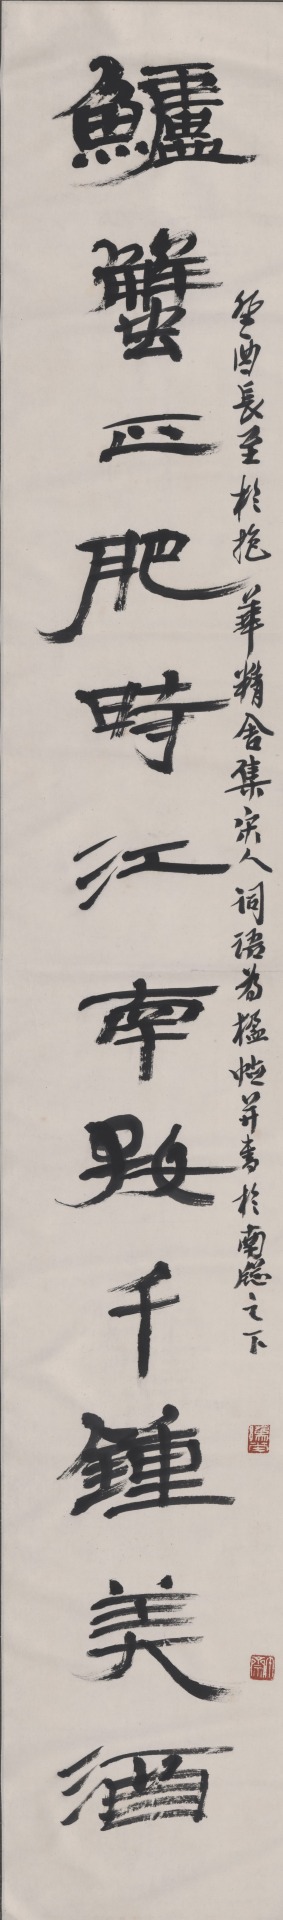 鱸蟹正肥時江南好千鍾美酒
癸酉長至於抱華精舍集宋人词語為楹帖并書於南牕之下